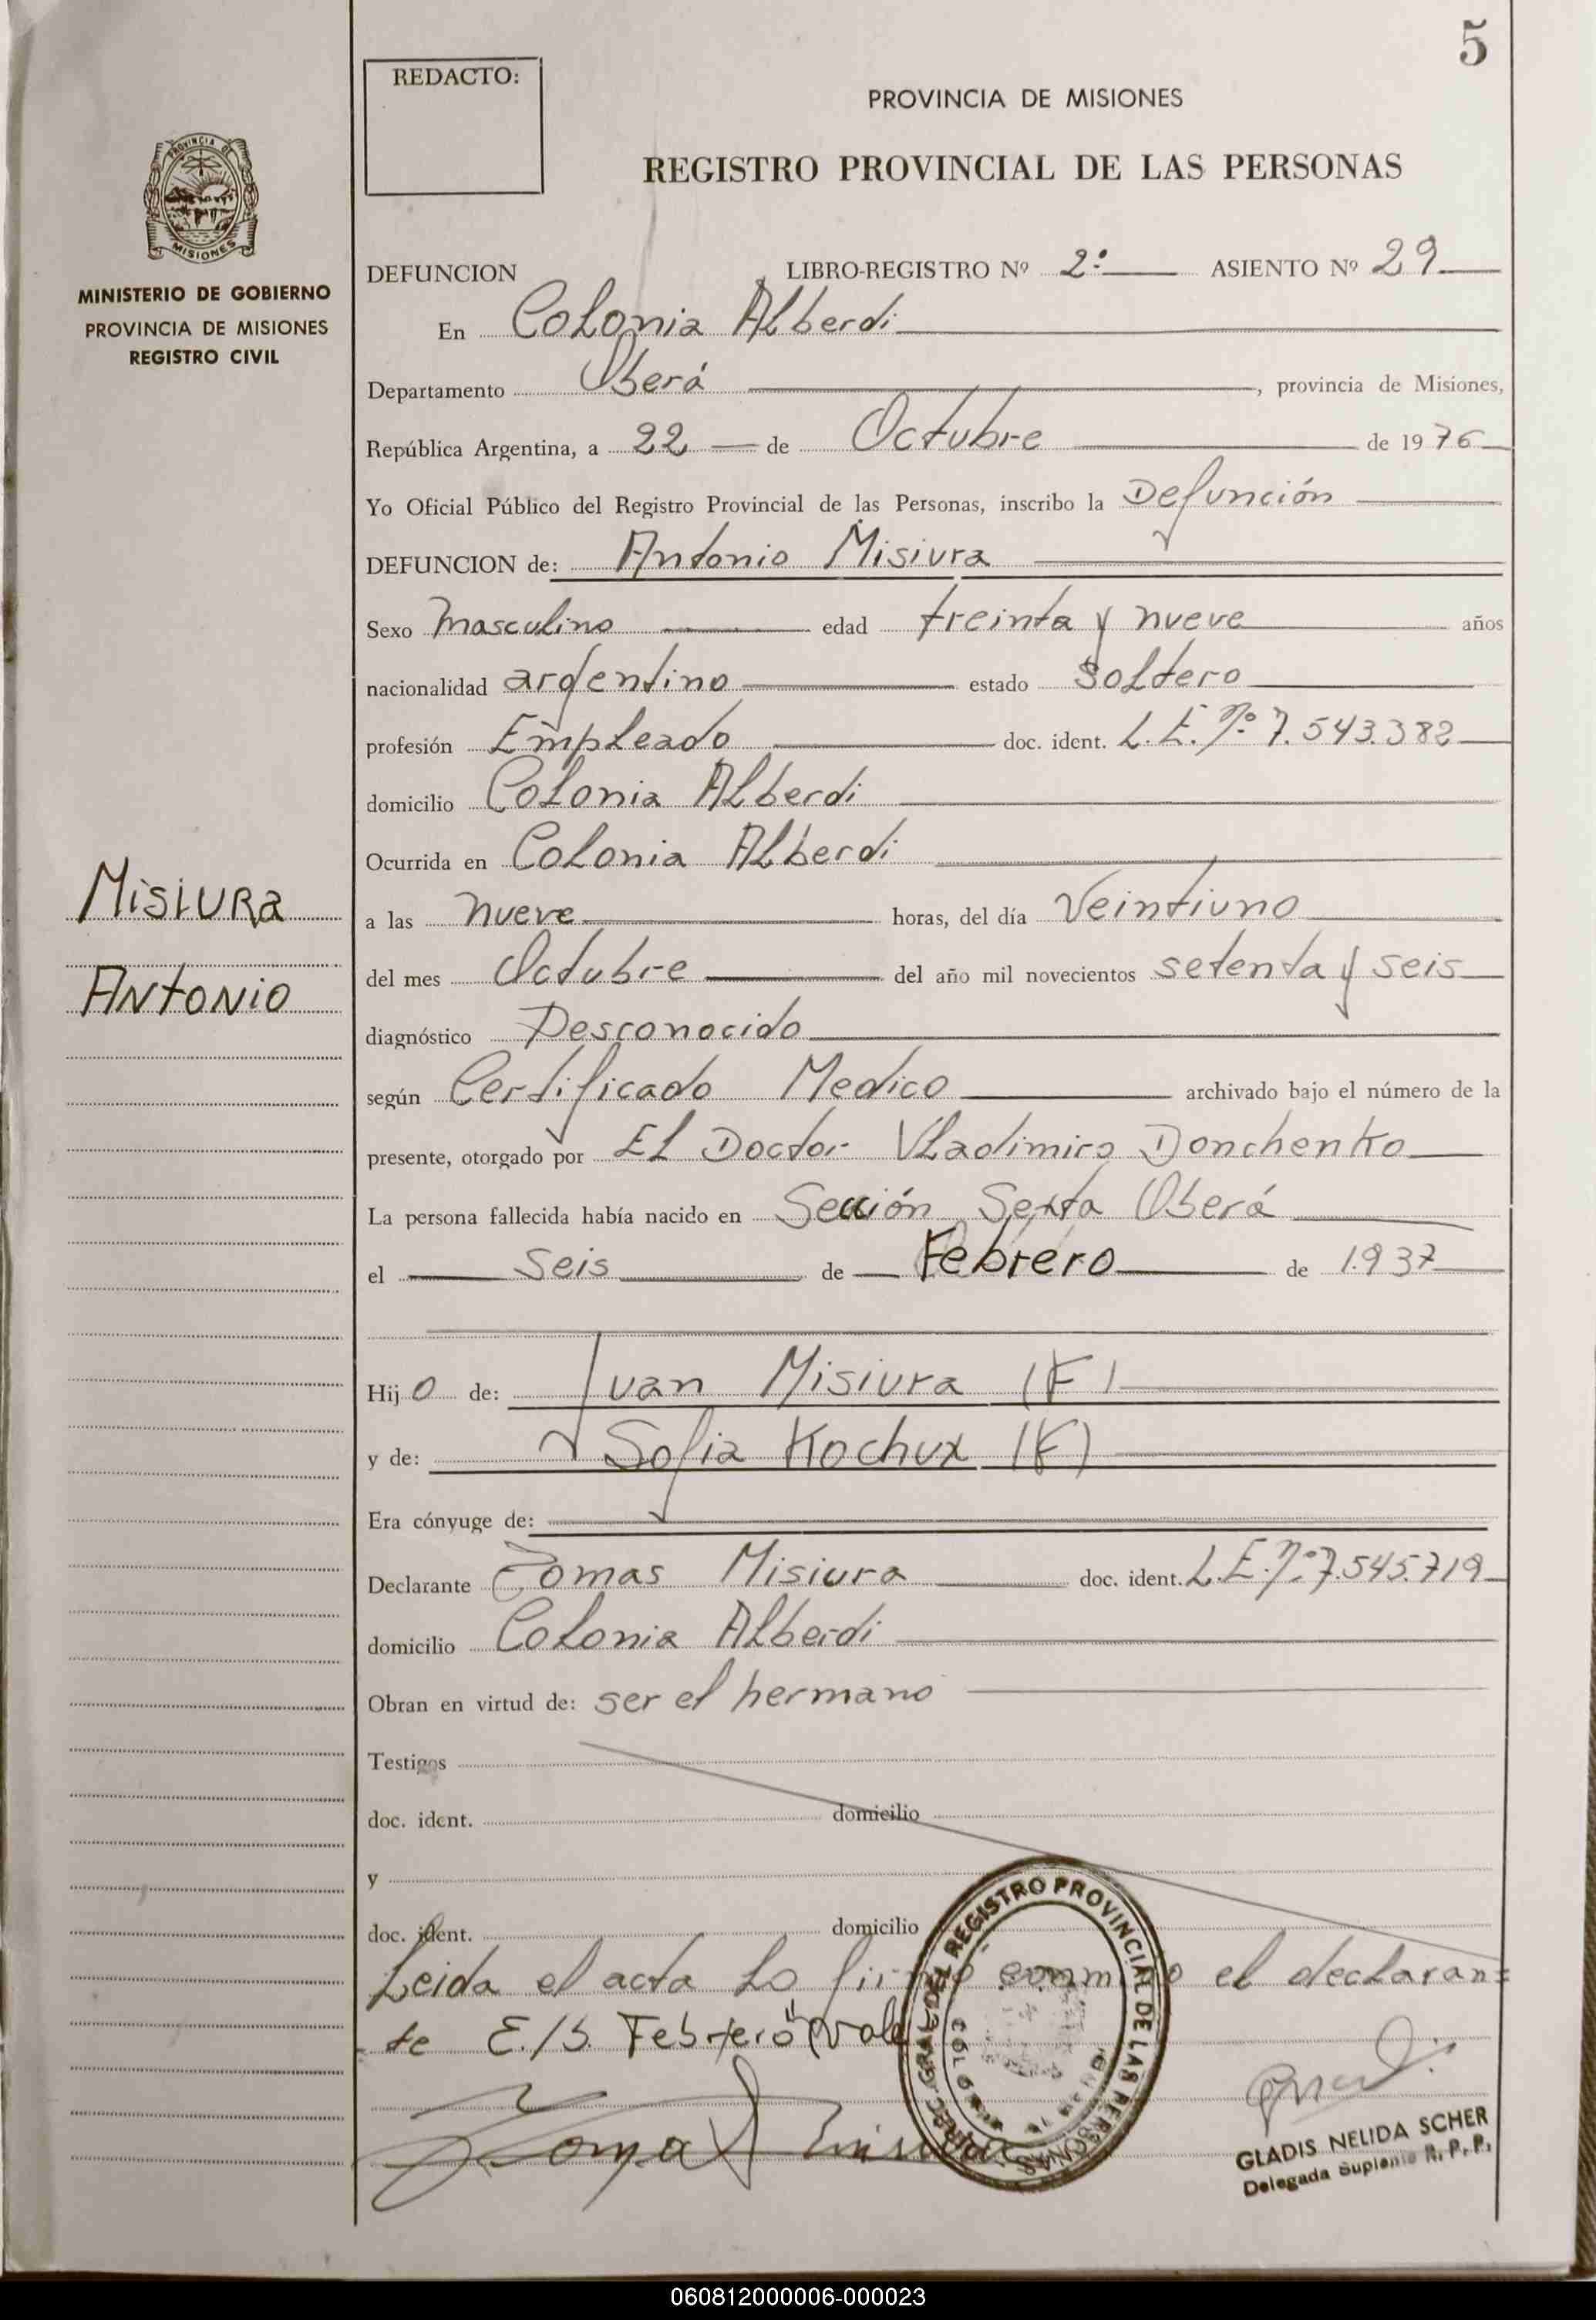 5
REDACTO:
PROVINCIA DE MISIONES
REGISTRO PROVINCIAL DE LAS PERSONAS
PROVINCIA DE
MISIONES
MINISTERIO DE GOBIERNO
PROVINCIA DE MISIONES
REGISTRO CIVIL
DEFUNCION LIBRO-REGISTRO Nº 2º ASIENTO Nº 29
En Colonia Alberdi
Departamento Oberá, provincia de Misiones,
República Argentina, a 22 de Octubre de 1976
Yo Oficial Público del Registro Provincial de las Personas, inscribo la Defunción
DEFUNCION de: Antonio Misiura
Sexo masculino edad treinta y nueve años
nacionalidad argentino estado Soltero
profesión Empleado doc. ident. L.E.nº 7.543.382
domicilio Colonia Alberdi
Ocurrida en Colonia Alberdi
MisiURa
a las nueve horas, del día Veintiuno
ANtONiO
del mes Octubre del año mil novecientos setenta y seis
diagnóstico Desconocido
según Certificado Medico archivado bajo el número de la
presente, otorgado por El Doctor Vladimiro Donchenko
La persona fallecida había nacido en Sección Sexta Oberá
el seis de Febrero de 1.937
Hijo de: Juan Misiura (F)
y de: Sofia Kochux (F)
Era cónyuge de:
Declarante Tomas Misiura doc. ident. L.E.nº 7.545.719
domicilio Colonia Alberdi
Obran en virtud de: ser el hermano
Testigos
doc. ident. domicilio
y
doc. ident. domicilio
Leida el acta lo firmó conmigo el declaran=
te E/S. Febrero "Vale
DIREC. GRAL. DEL REGISTRO PROVINCIAL DE LAS PERSONAS
GLADIS NELIDA SCHER
Delegada Suplente R. P. P.
060812000006-000023